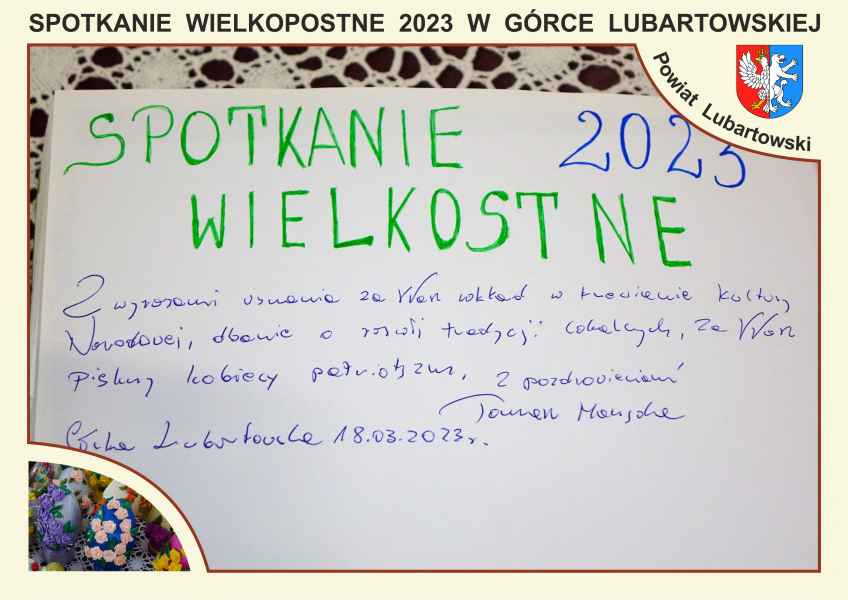 SPOTKANIE WIELKOPOSTNE 2023 W GÓRCE LUBARTOWSKIEJ
Powiat Lubartowski
SPOTKANIE 2023
WIELKOSTNE
Z wyrazami uznania za Wasz wkład w tworzenie kultury
Narodowej, dbanie o rozwój tradycji lokalnych, za Wasz
Piękny kobiecy patriotyzm, z pozdrowieniami
Tomasz
Górka Lubartowska 18.03.2023r.